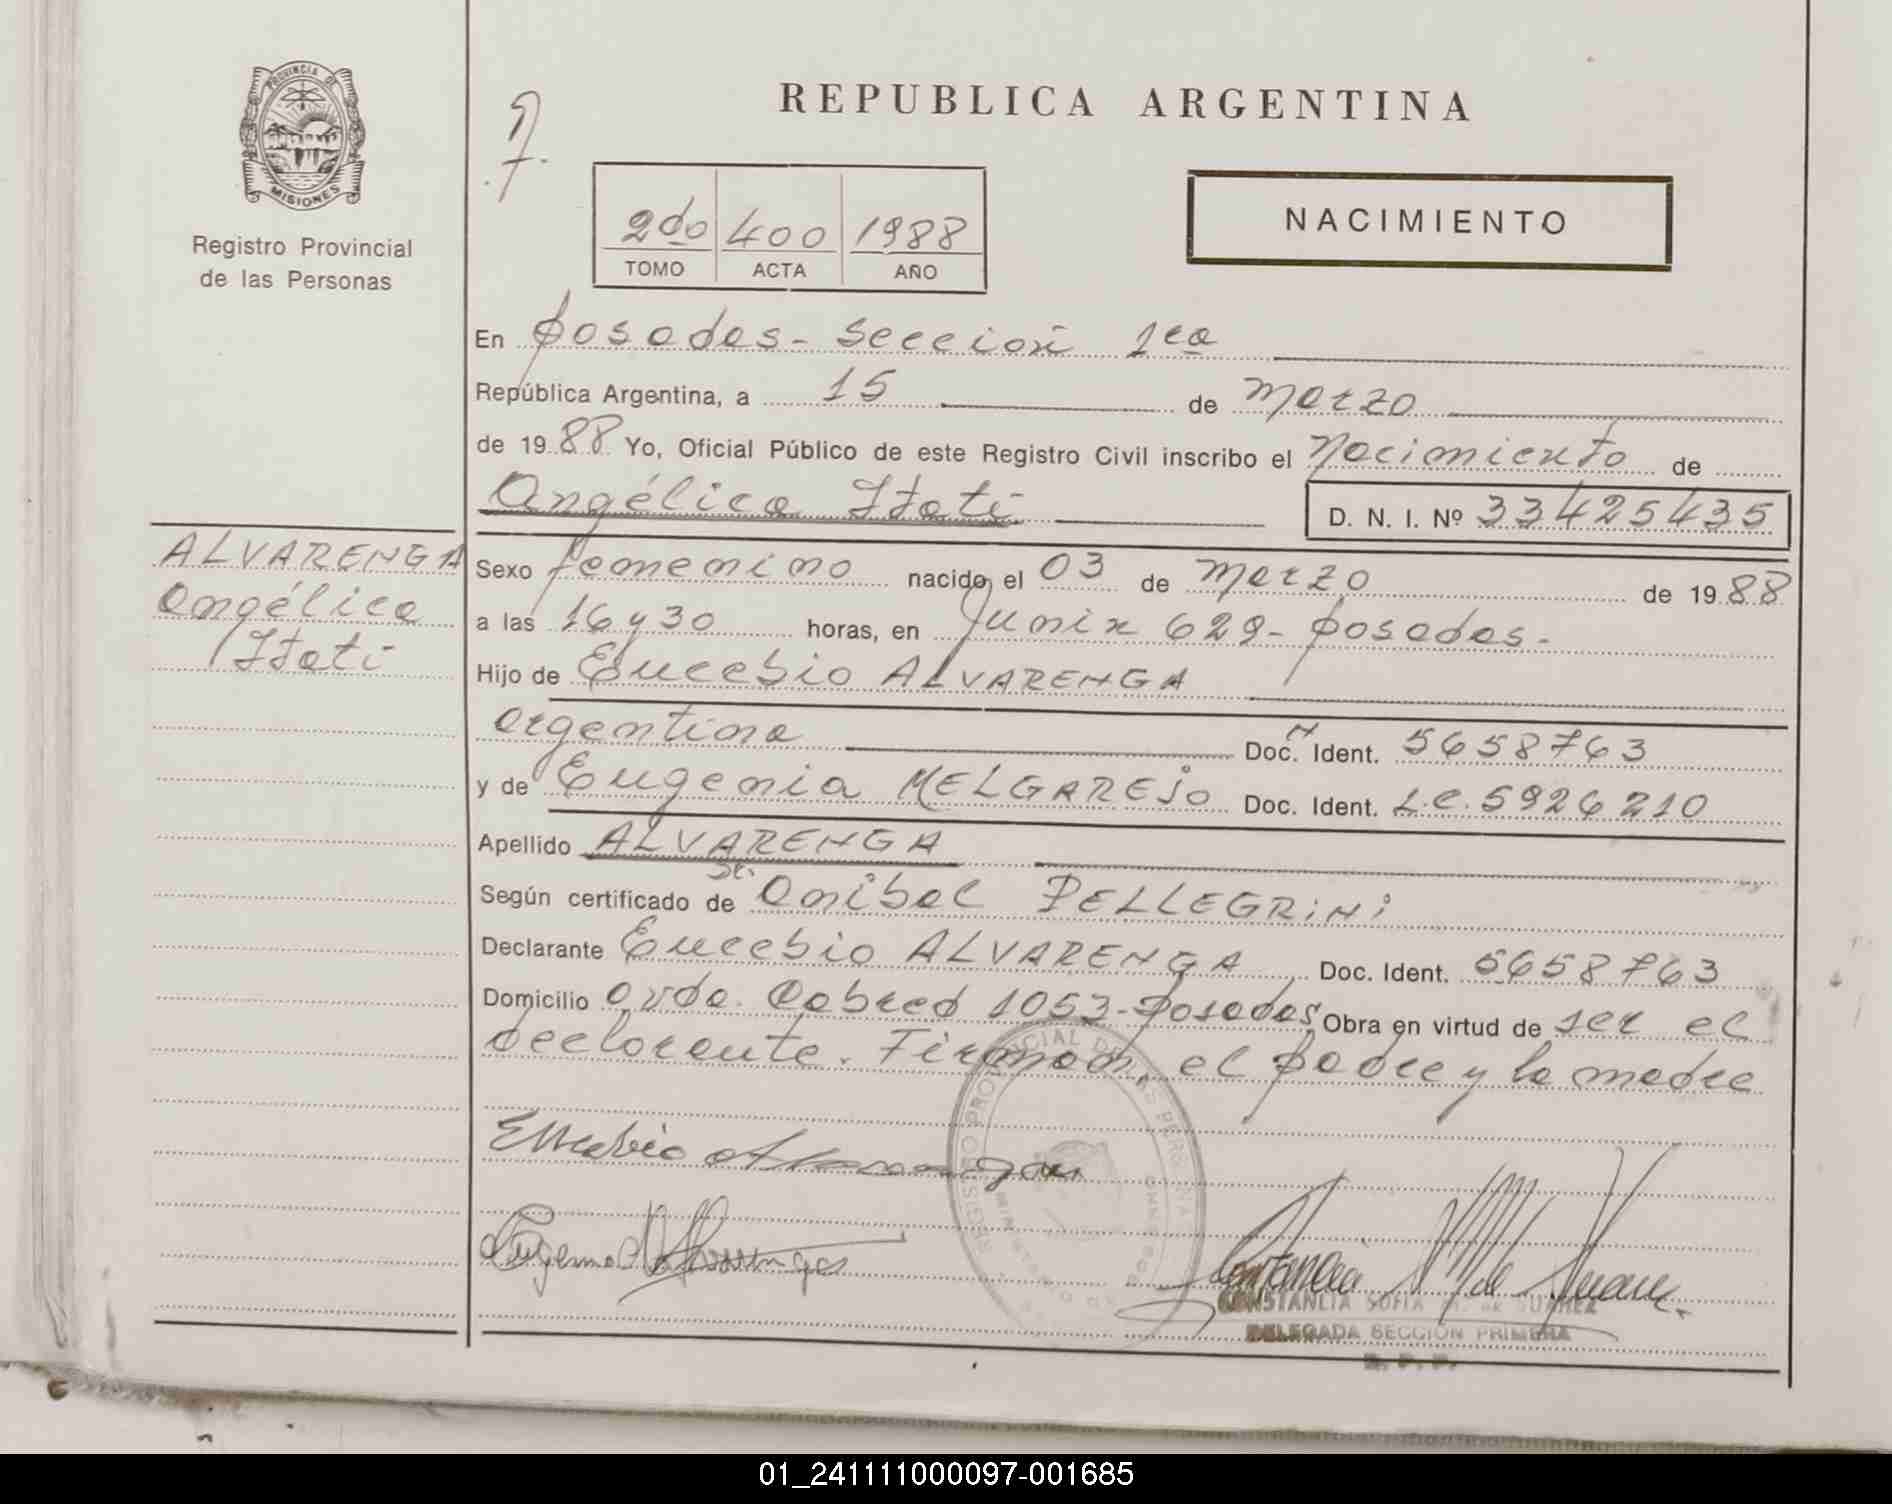 PROVINCIA DE
MISIONES
Registro Provincial
de las Personas
REPUBLICA ARGENTINA
2do 400 1988
TOMO ACTA AÑO
NACIMIENTO
En Posadas - Sección 1ra
República Argentina, a 15 de Marzo
de 1988 Yo, Oficial Público de este Registro Civil inscribo el Nacimiento de
Angélica Itatí D. N. I. Nº 33425435
ALVARENGA
Angélica
Itatí
Sexo femenino nacido el 03 de Marzo de 1988
a las 16 y 30 horas, en Junin 629 - Posadas -
Hijo de Eucebio ALVARENGA
argentina Doc. Ident. 5658763
y de Eugenia MELGAREJO Doc. Ident. L.C. 5926210
Apellido ALVARENGA
Según certificado de Dr. Anibal PELLEGRINI
Declarante Eucebio ALVARENGA Doc. Ident. 5658763
Domicilio avda. Cabred 1053 - Posadas, Obra en virtud de ser el
declarante. Firman, el padre y la madre
CONSTANCIA SOFIA M. de SUAREZ
DELEGADA SECCION PRIMERA
R. P. P.
01_241111000097-001685